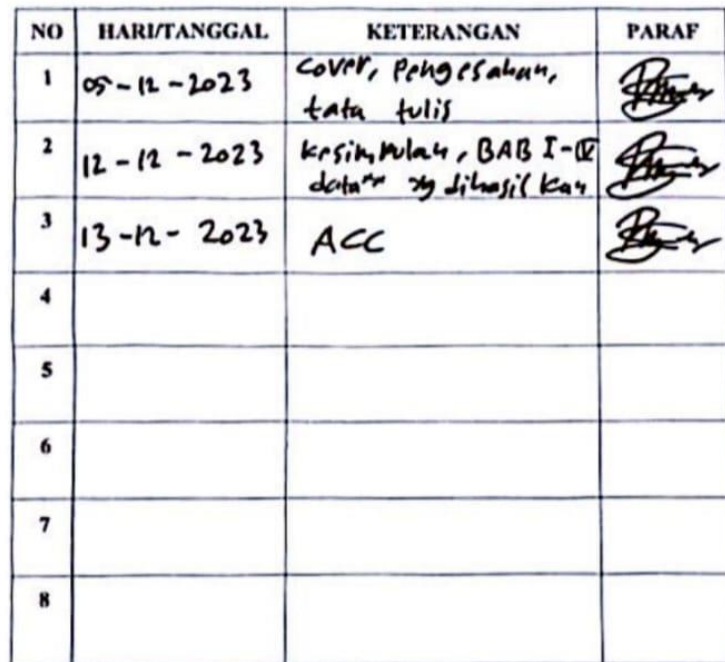 NO HARI/TANGGAL KETERANGAN PARAF
1 05-12-2023 cover, pengesahan,
tata tulis
2 12-12-2023 kesimpulan, BAB I-IV
data yg dihasilkan
3 13-12-2023 ACC
4
5
6
7
8